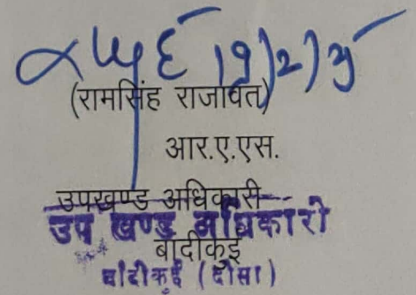 (रामसिंह राजावत)
आर.ए.एस.
उपखण्ड अधिकारी
उप खण्ड अधिकारी
बांदीकुई
बांदीकुई (दौसा)